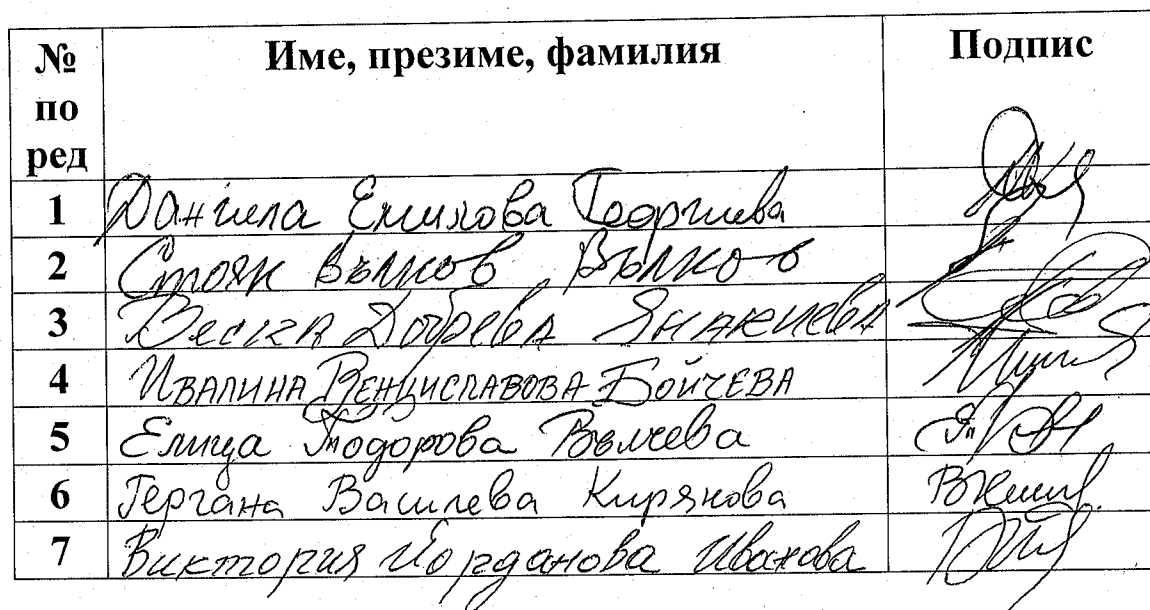 № по ред Име, презиме, фамилия Подпис
1 Даниела Емилова Георгиева
2 Стоян Вълков Вълков
3 Весела Добрева Янакиева
4 Ивалина Венциславова Бойчева
5 Елица Тодорова Вълчева
6 Гергана Василева Кирякова
7 Виктория Йорданова Иванова